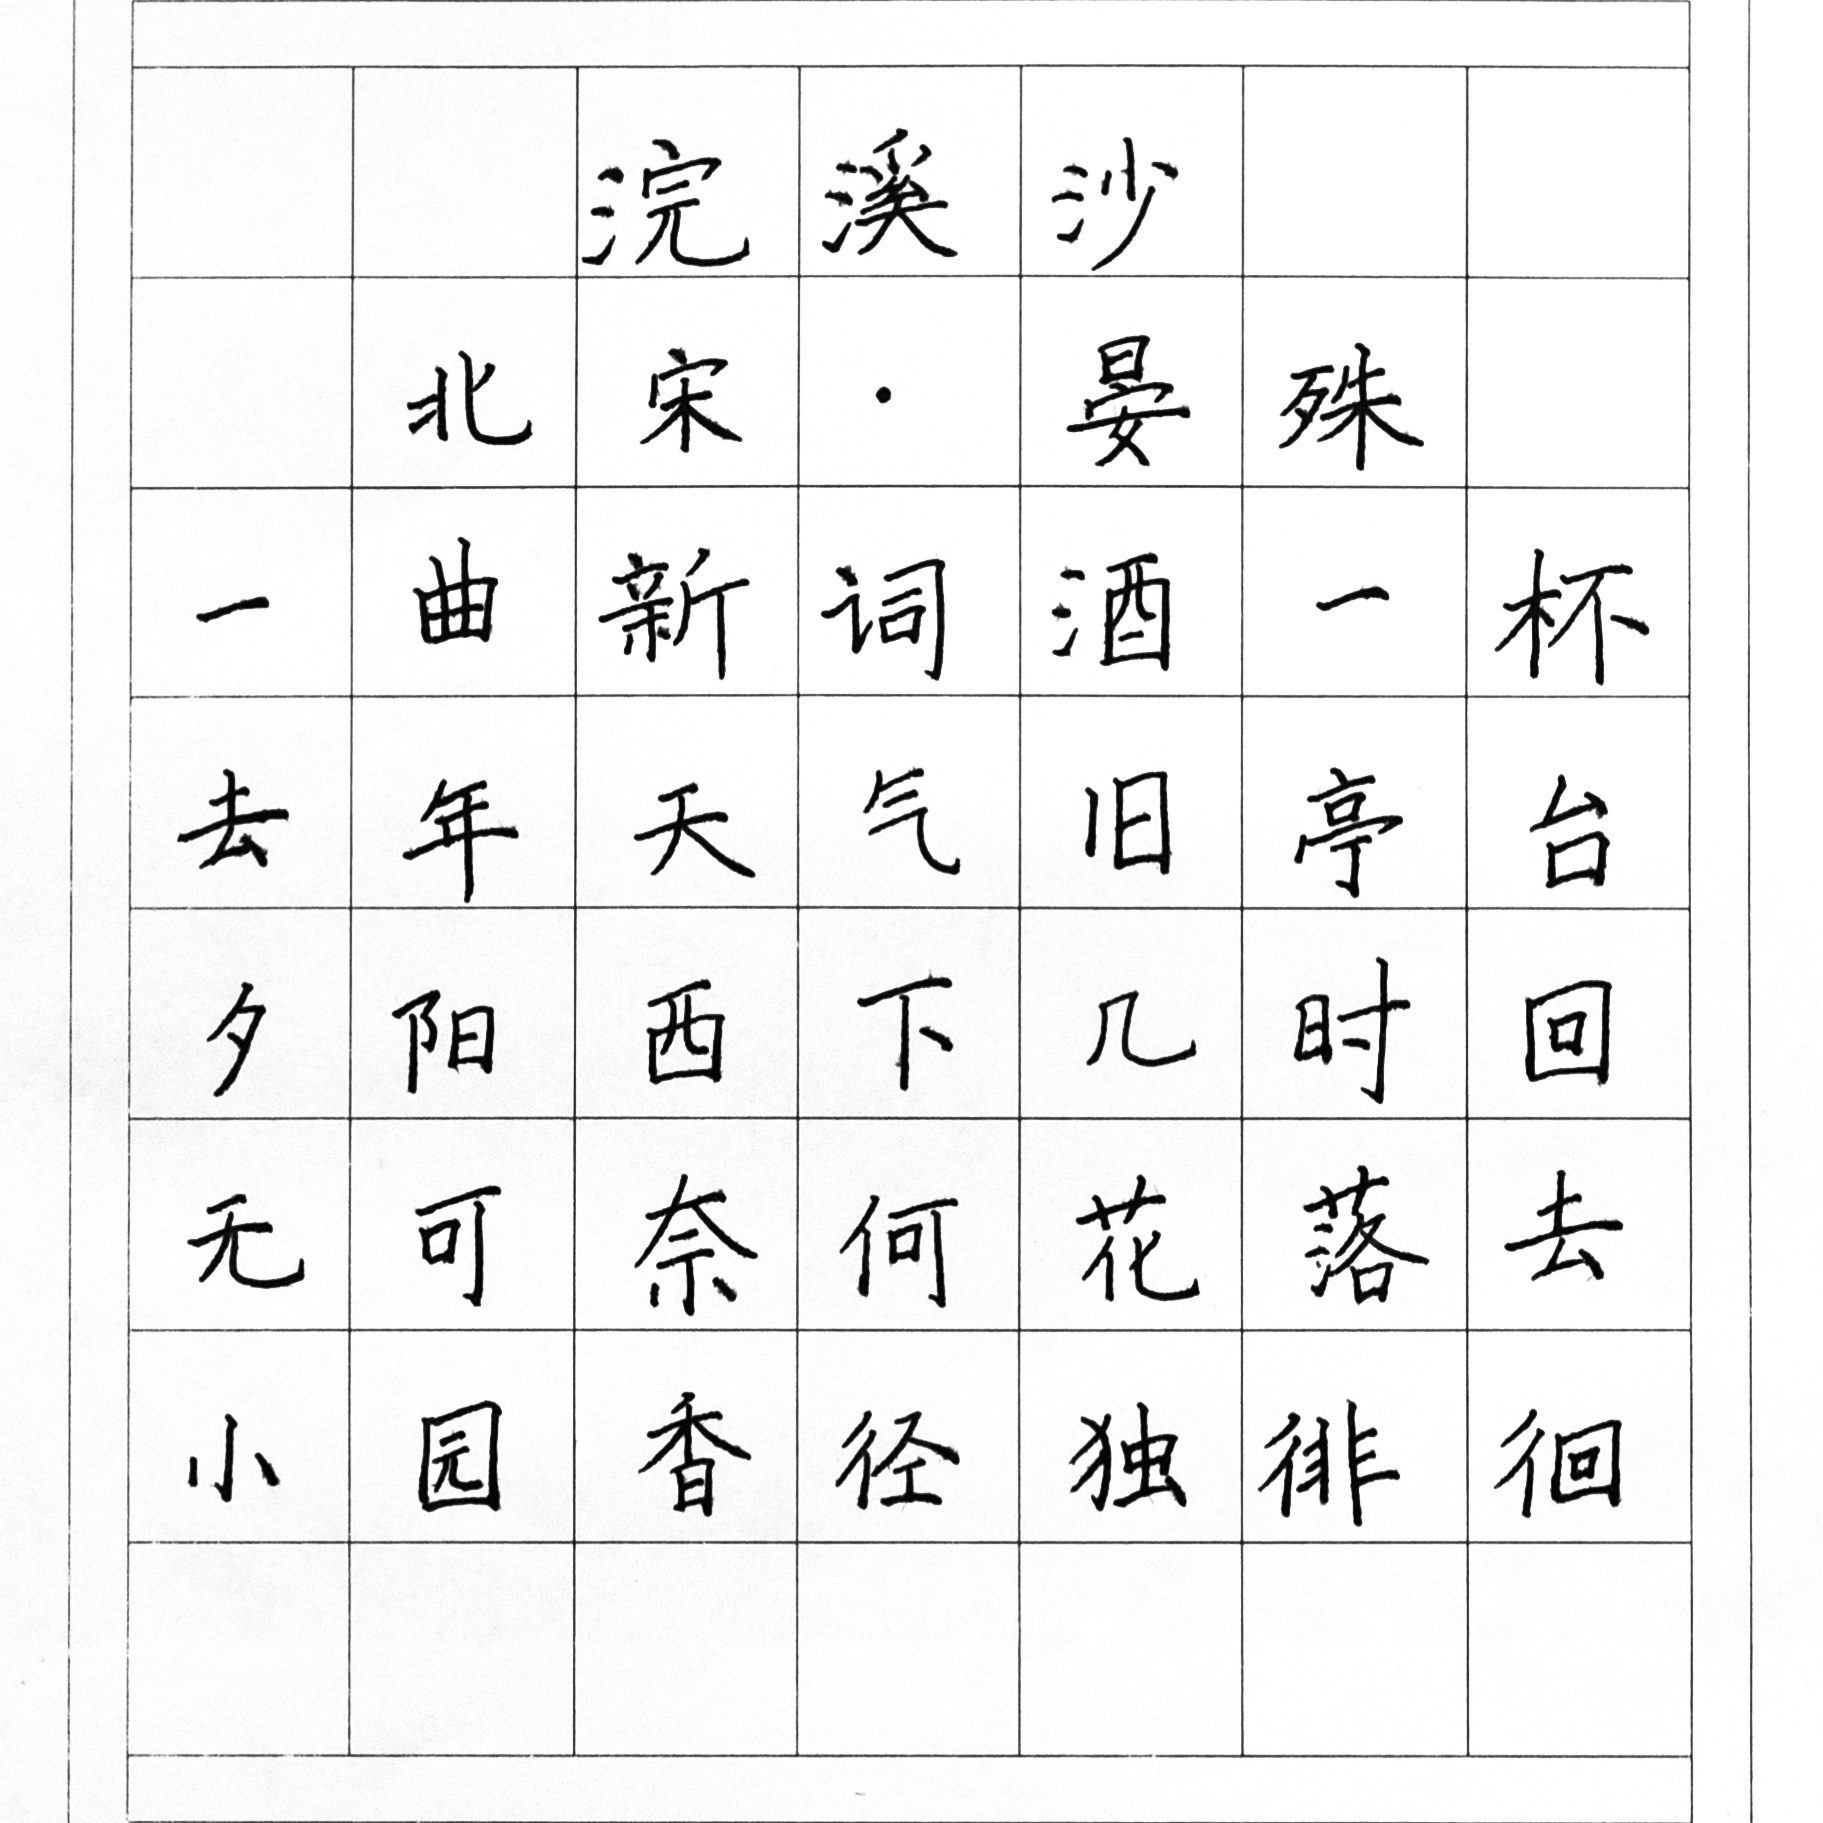 浣溪沙
北宋·晏殊
一曲新词酒一杯
去年天气旧亭台
夕阳西下几时回
无可奈何花落去
小园香径独徘徊